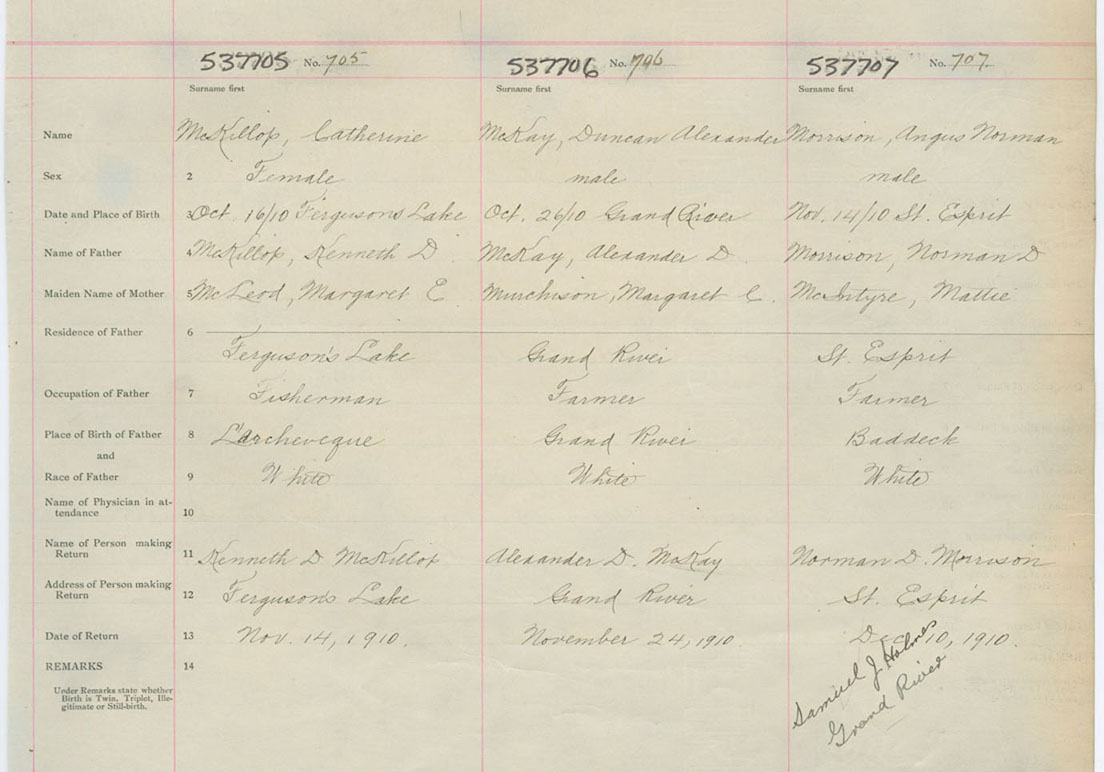 537705 No. 705 537706 No. 706 537707 No. 707
Surname first Surname first Surname first
Name McKillop, Catherine McKay, Duncan Alexander Morrison, Angus Norman
Sex 2 Female male male
Date and Place of Birth 3 Oct. 16/10 Fergusons Lake Oct. 26/10 Grand River Nov. 14/10 St. Esprit
Name of Father 4 McKillop, Kenneth D. McKay, Alexander D. Morrison, Norman D
Maiden Name of Mother 5 McLeod, Margaret E. Murchison, Margaret C. McIntyre, Mattie
Residence of Father 6
Ferguson's Lake Grand River St. Esprit
Occupation of Father 7 Fisherman Farmer Farmer
Place of Birth of Father 8 L'archeveque Grand River Baddeck
and
Race of Father 9 White White White
Name of Physician in at-
tendance 10
Name of Person making
Return 11 Kenneth D McKillop Alexander D. McKay Norman D. Morrison
Address of Person making
Return 12 Ferguson's Lake Grand River St. Esprit
Date of Return 13 Nov. 14, 1910. November 24, 1910. Dec 10, 1910.
REMARKS 14
Under Remarks state whether
Birth is Twin, Triplet, Ille-
gitimate or Still-birth.
Samuel J. Holmes
Grand River